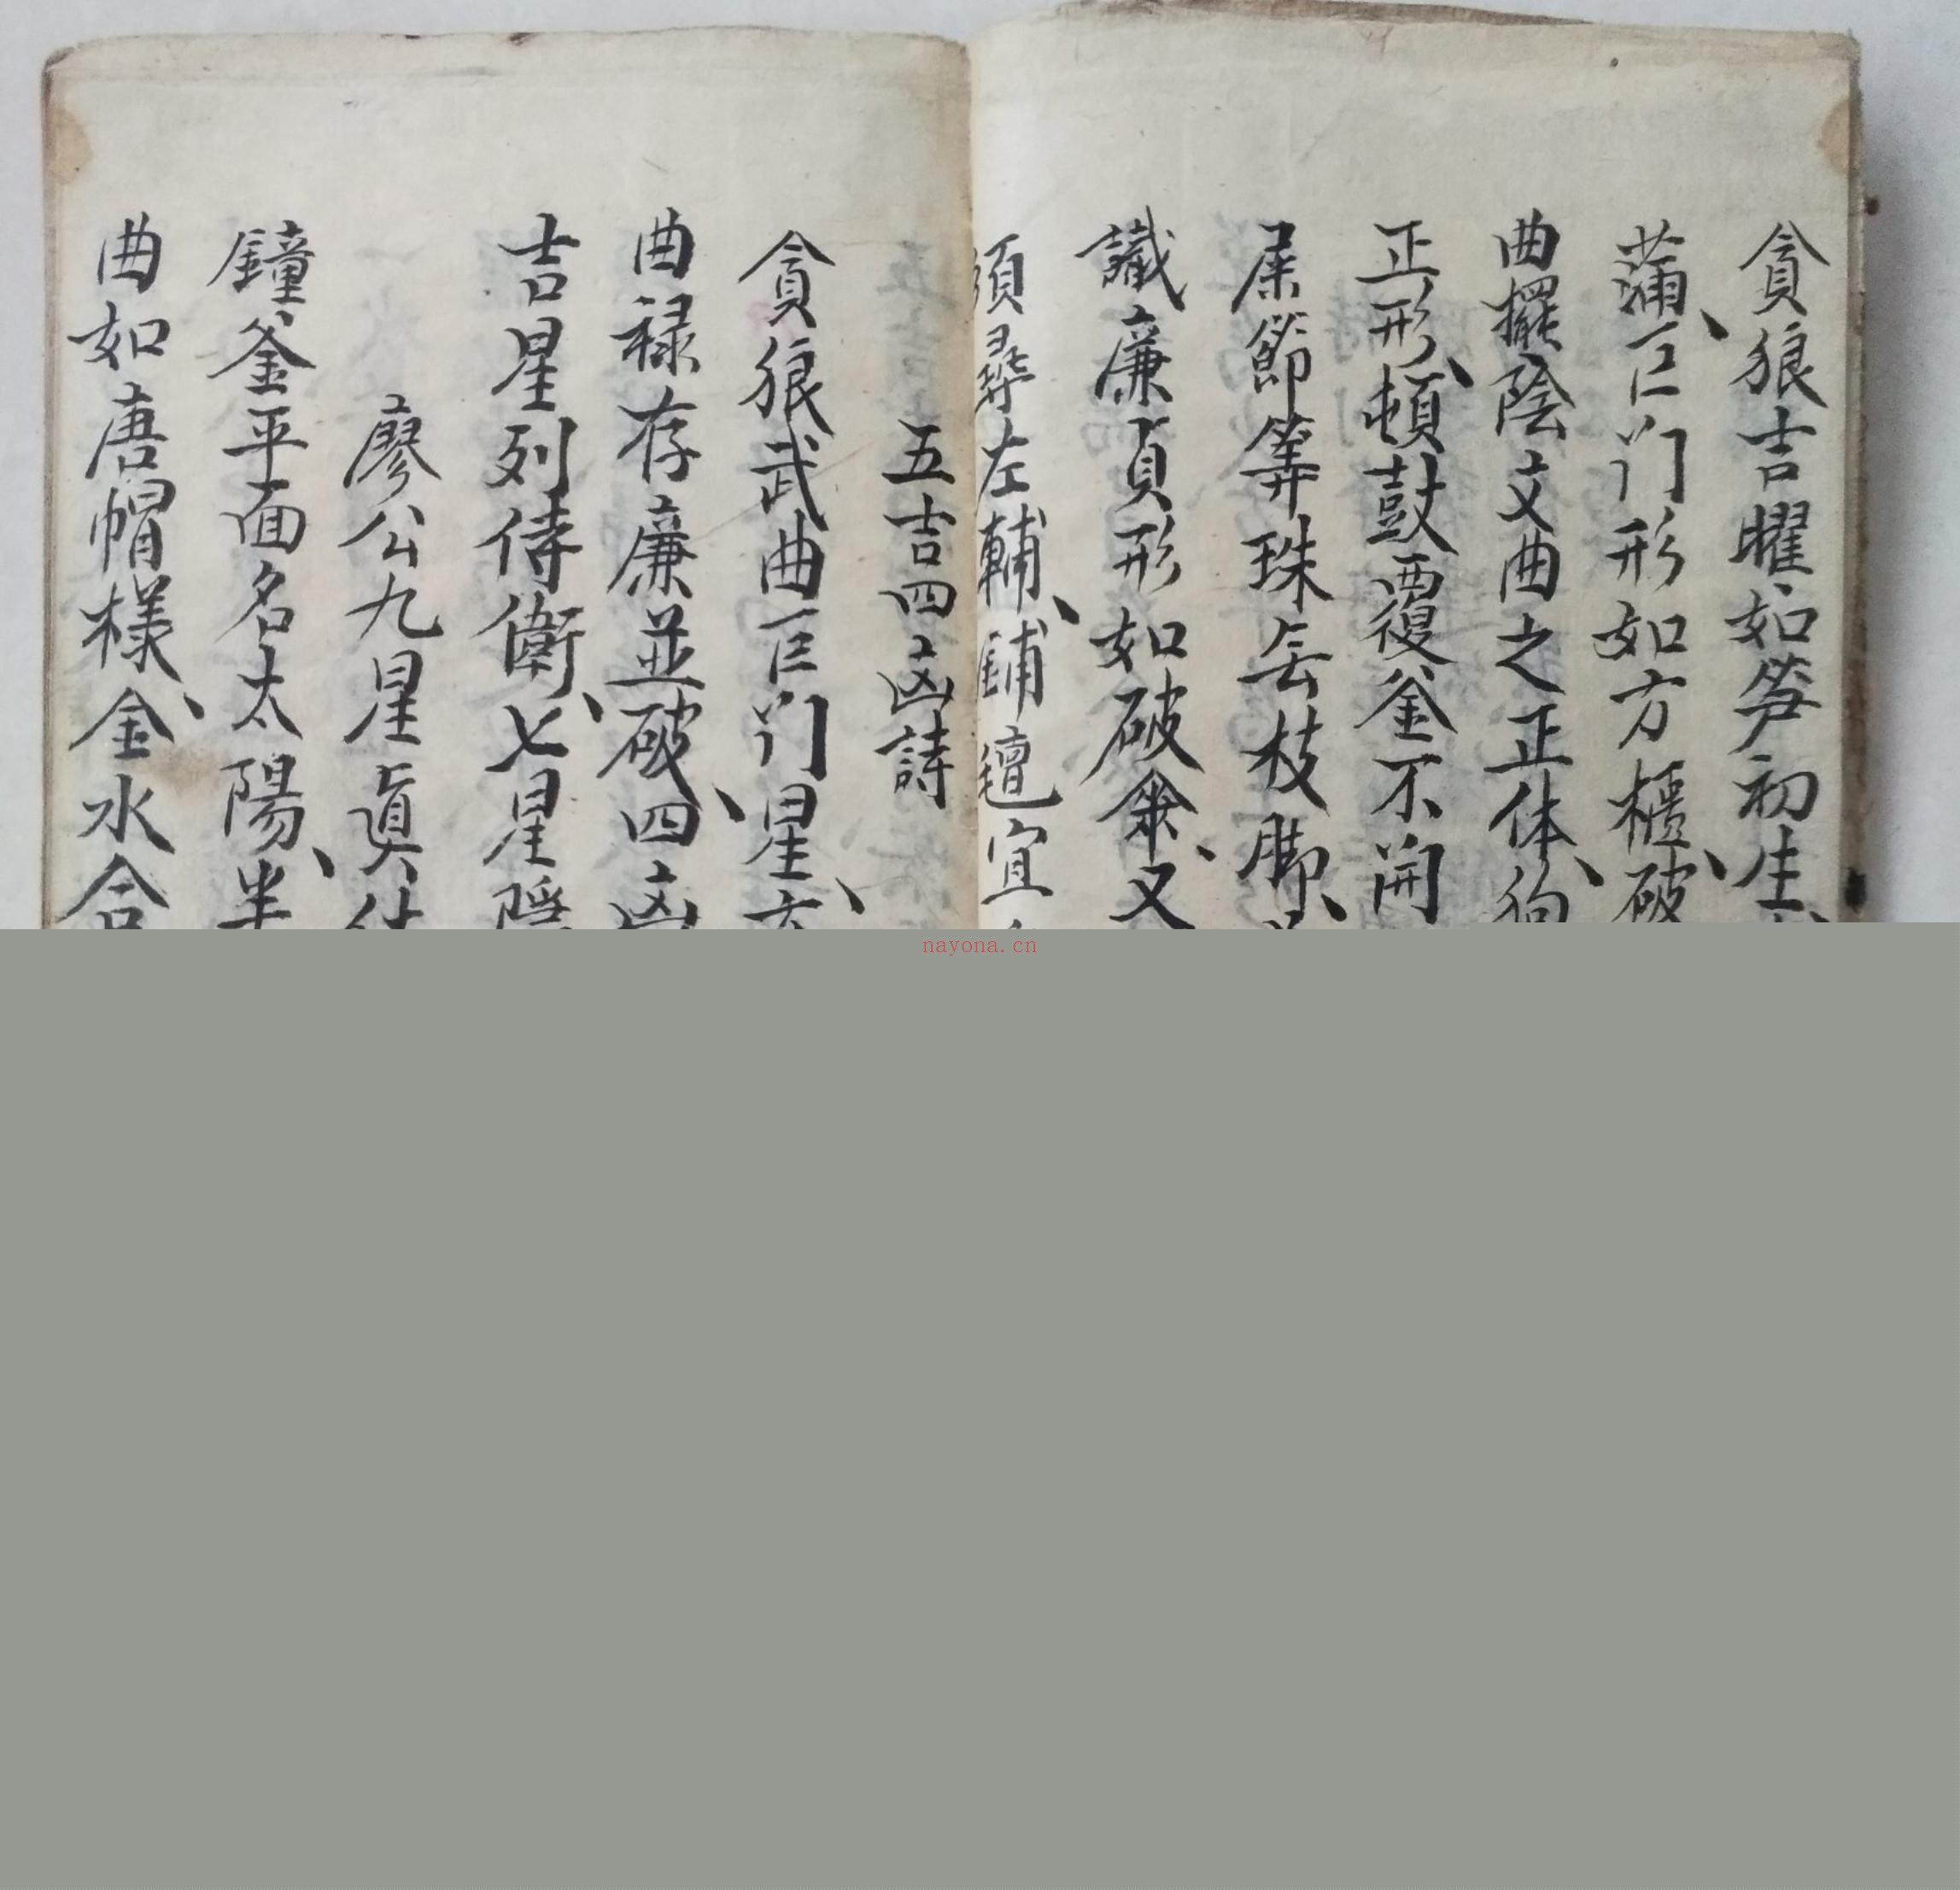 貪狼吉曜如笋初生
蒲巨门形如方櫃破
曲擺陰文曲之正体
正形頓鼓覆釜不開
屎節等珠㒰枝脚
識廉貞形如破傘又
須尋左輔鋪氊宜
五吉四凶詩
貪狼武曲巨门星六
曲禄存廉並破四凶
吉星列侍衛七星
廖公九星真
鐘釜平面名太陽
曲如唐帽樣金水合
nayona.cn